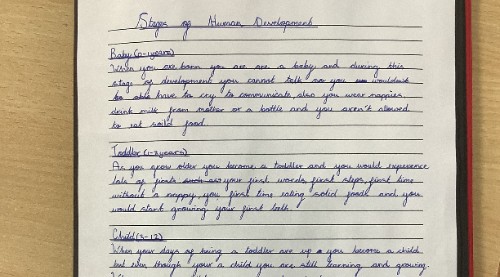 Stages of Human Development
Baby (0-1years)
When you are born you are are a baby and during this
stage of development you cannot talk so you wouldn't
be able have to cry to communicate also you wear nappies,
drink milk from mother or a bottle and you aren't allowed
to eat soild food.
Toddler (1-3years)
As you grow older you become a toddler and you would experience
lots of firsts such as your first words, first steps, first time
without a nappy, you first time eating solid foods and you
would start growing your first teeth.
Child (3-12)
When your days of being a toddler are up you become a child
but even though your a child you are still learning and growing.